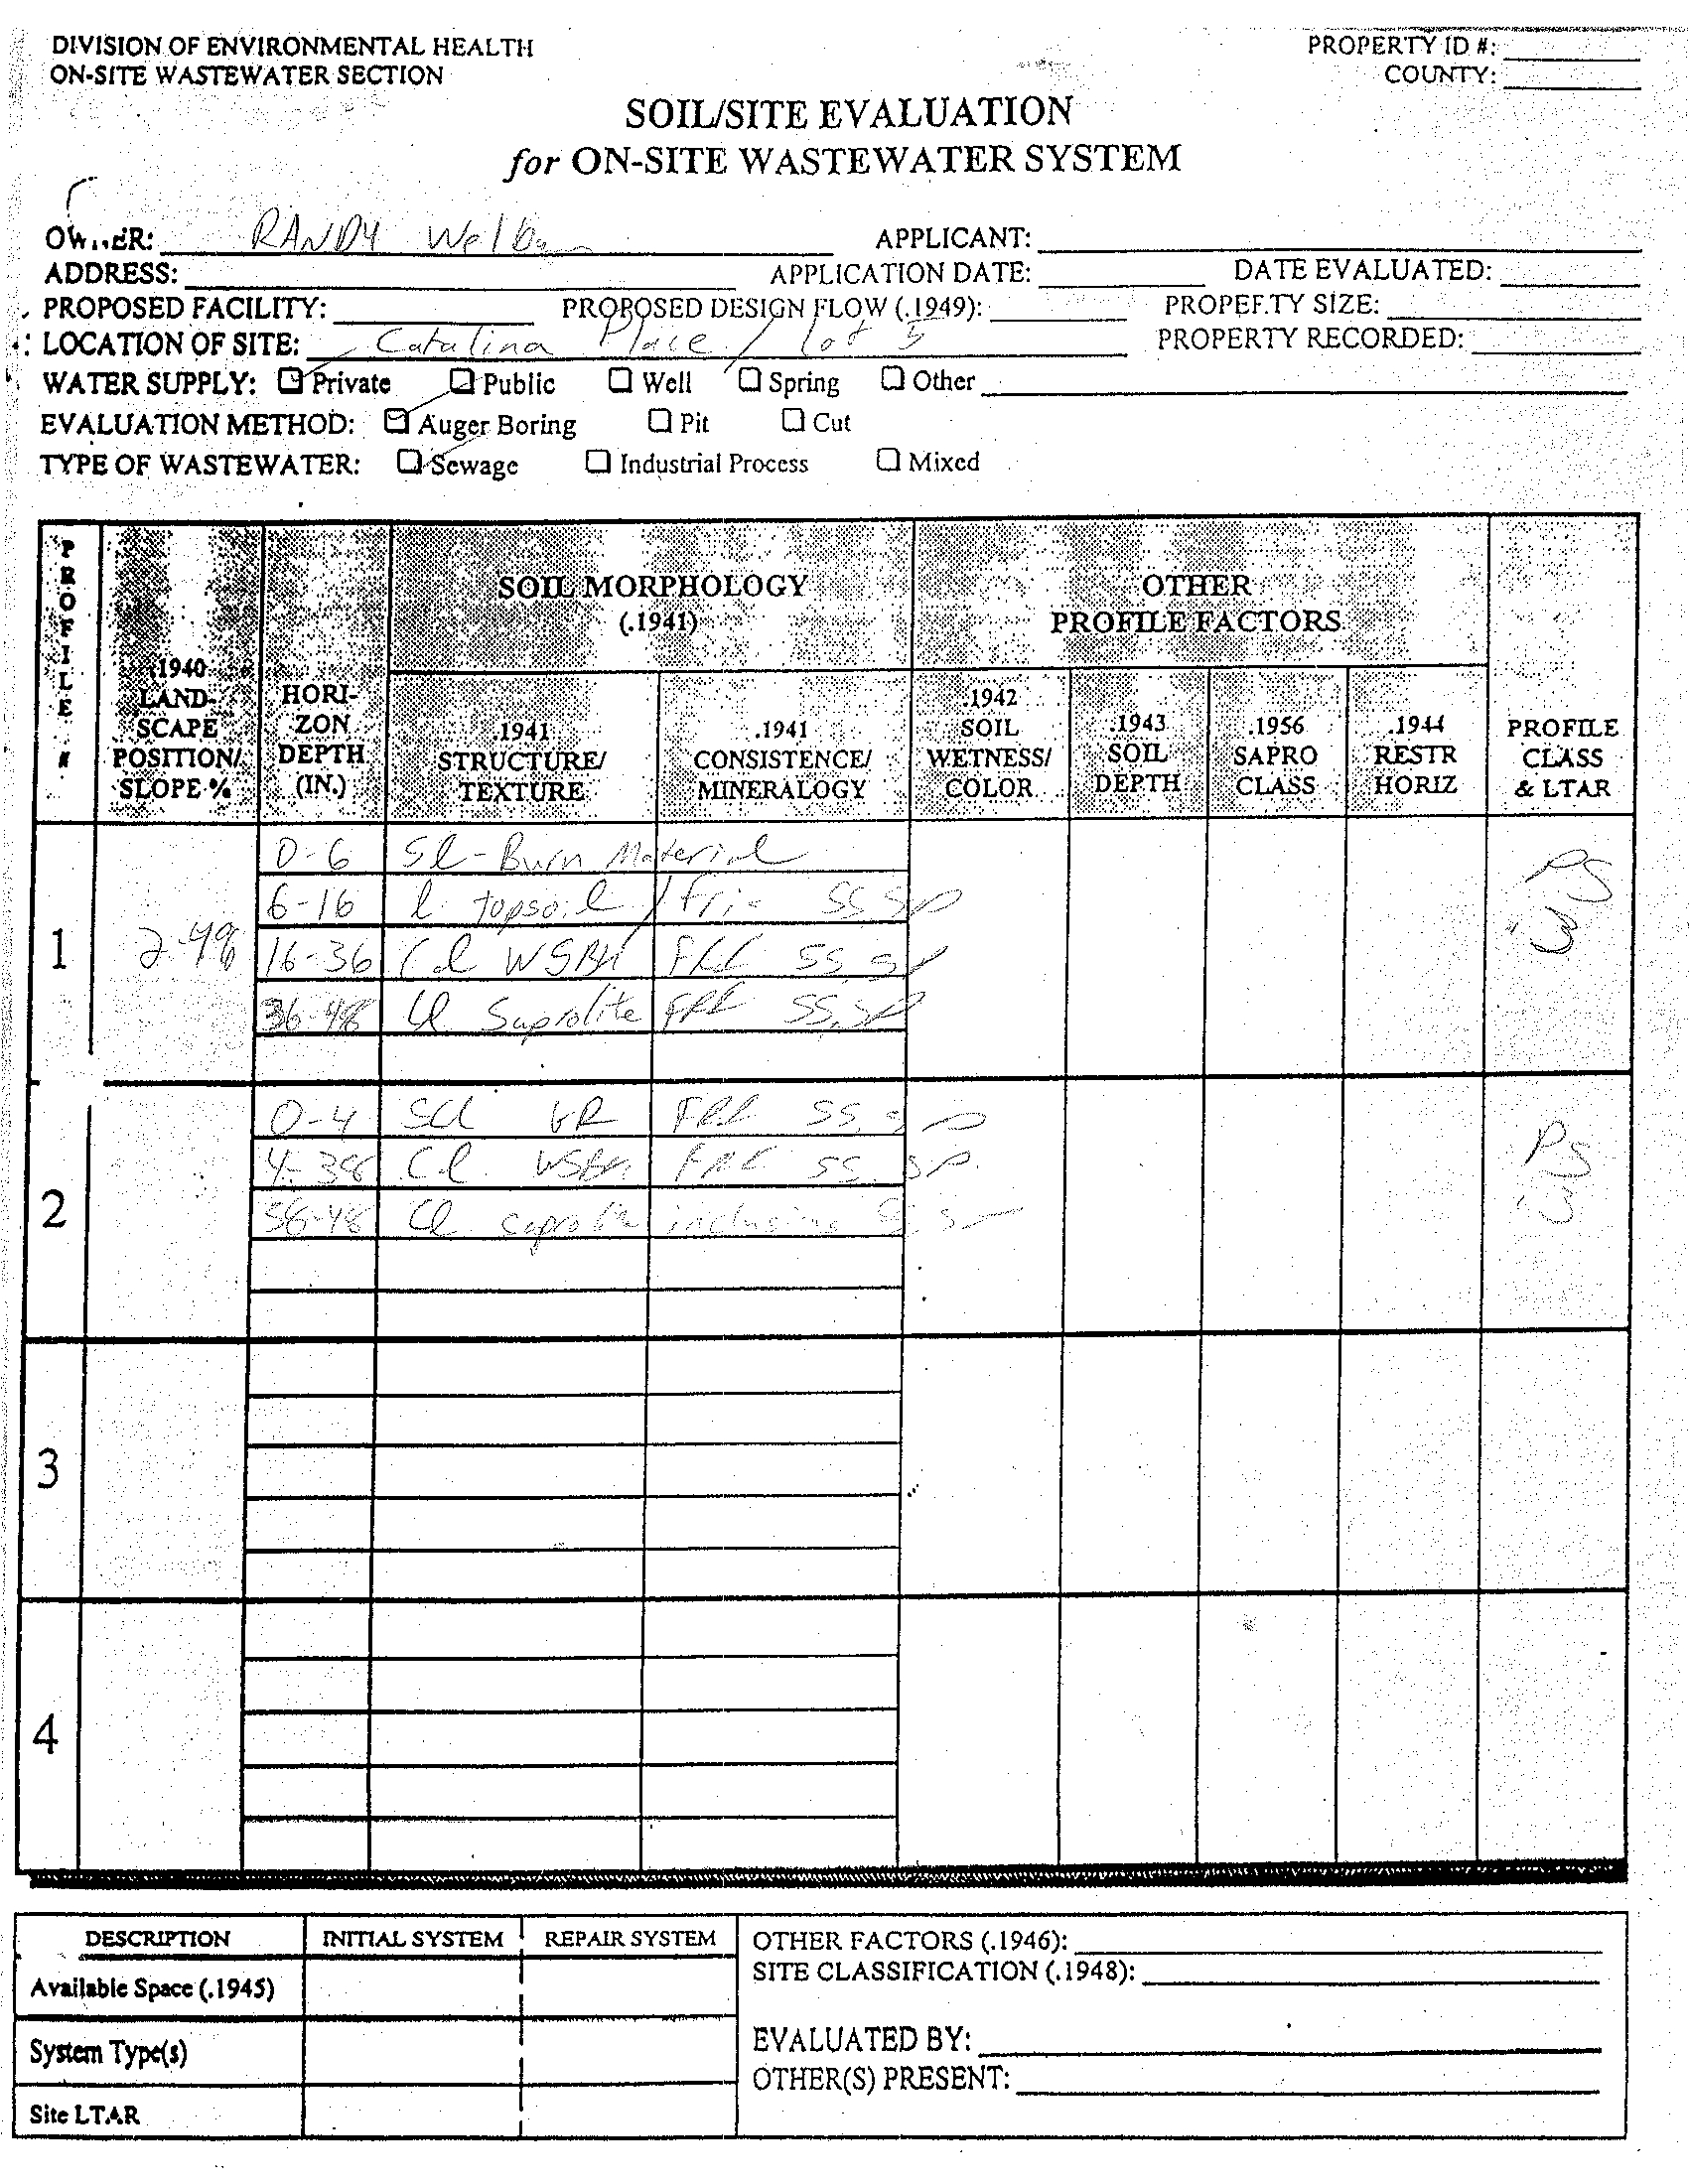 DIVISION OF ENVIRONMENTAL HEALTH
PROPERTY ID #:
ON-SITE WASTEWATER SECTION
COUNTY:
SOIL/SITE EVALUATION
for ON-SITE WASTEWATER SYSTEM
OWNER: RANDY
APPLICANT:
ADDRESS: APPLICATION DATE: DATE EVALUATED:
PROPOSED FACILITY: PROPOSED DESIGN FLOW (.1949): PROPERTY SIZE:
LOCATION OF SITE: Catalina Place / Lot 5 PROPERTY RECORDED:
WATER SUPPLY: Private Public Well Spring Other
EVALUATION METHOD: Auger Boring Pit Cut
TYPE OF WASTEWATER: Sewage Industrial Process Mixed
PROFILE #
.1940 LAND-SCAPE POSITION/ SLOPE %
HORI-ZON DEPTH (IN.)
SOIL MORPHOLOGY
(.1941)
OTHER
PROFILE FACTORS
.1941 STRUCTURE/ TEXTURE
.1941 CONSISTENCE/ MINERALOGY
.1942 SOIL WETNESS/ COLOR
.1943 SOIL DEPTH
.1956 SAPRO CLASS
.1944 RESTR HORIZ
PROFILE CLASS & LTAR
1
0-6 Sl-Burn Material
PS
6-16 l topsoil / Fri SS SP
16-36 Cl WSBK SS SP
36-48 Cl Saprolite SS, SP
2
0-4 SCl GR SS, SP
PS
Cl WSBK SS SP
Cl inclusions
3
4
DESCRIPTION INITIAL SYSTEM REPAIR SYSTEM
Available Space (.1945)
System Type(s)
Site LTAR
OTHER FACTORS (.1946):
SITE CLASSIFICATION (.1948):
EVALUATED BY:
OTHER(S) PRESENT: